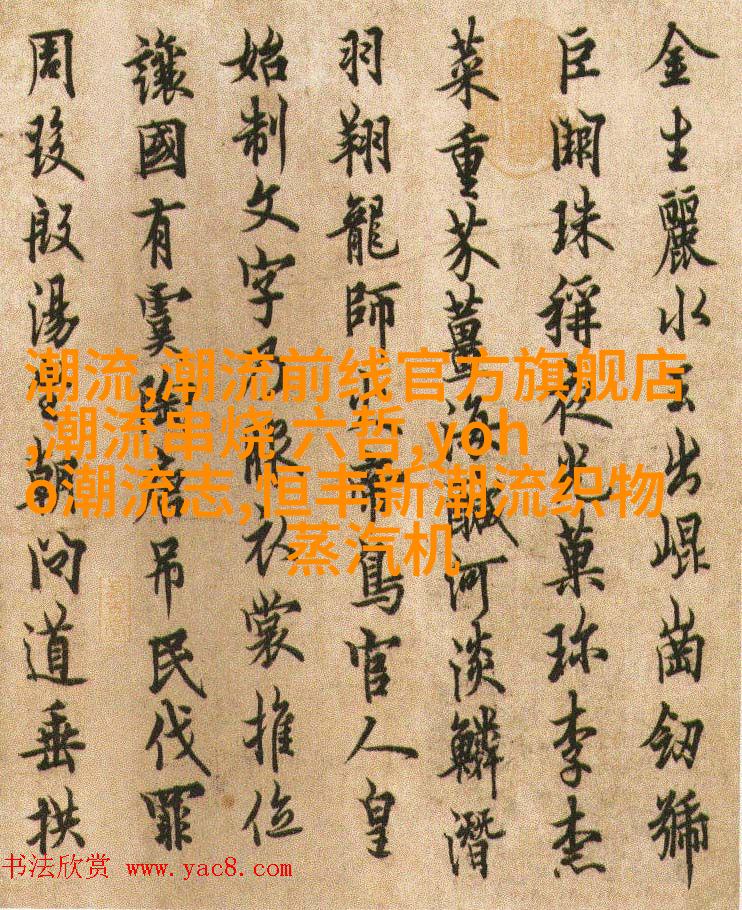 金生麗水玉出崐崗劒號
巨闕珠稱夜光菓珎李柰
菜重芥薑海醎河淡鱗潛
羽翔龍師鳥官人皇
始制文字乃服衣裳推位
讓國有虞陶唐吊民伐罪
周發殷湯朝問道垂拱
潮流,潮流前线官方旗舰店
,潮流串烧 六哲,yoh
o潮流志,恒丰新潮流织物
蒸汽机
书法欣赏 www.yac8.com